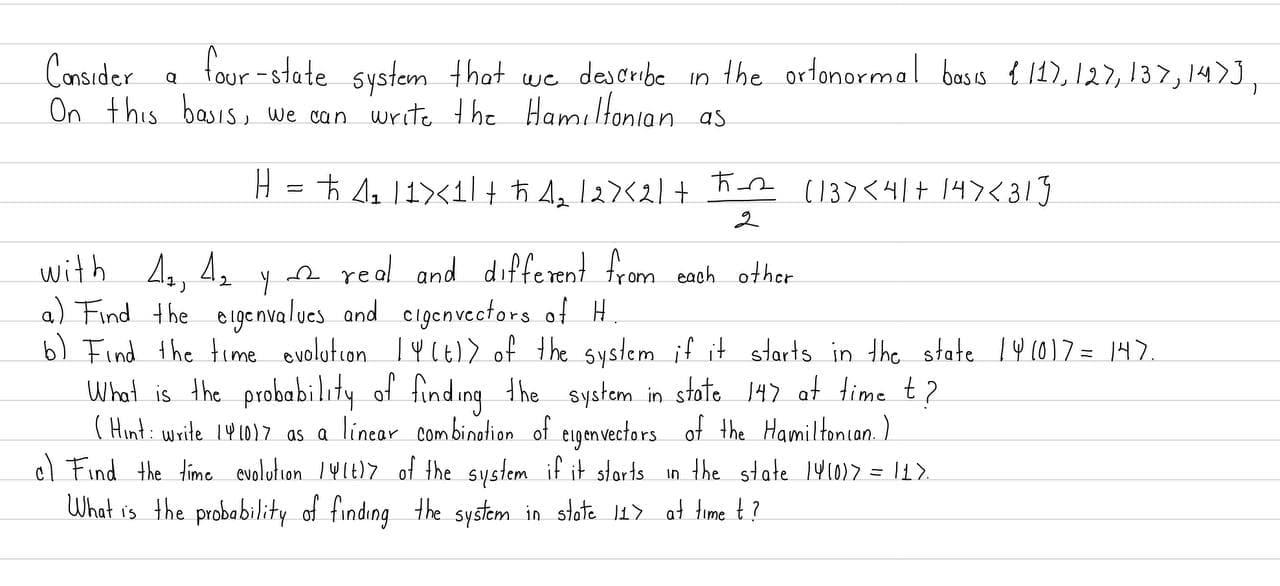 Consider a four-state system that we describe in the ortonormal basis {|1>, |2>, |3>, |4>},
On this basis, we can write the Hamiltonian as
H = ħ Δ₁ |1><1| + ħ Δ₂ |2><2| + ħΩ/2 (|3><4| + |4><3|}
with Δ₁, Δ₂ y Ω real and different from each other
a) Find the eigenvalues and eigenvectors of H.
b) Find the time evolution |Ψ(t)> of the system if it starts in the state |Ψ(0)> = |4>.
What is the probability of finding the system in state |4> at time t?
(Hint: write |Ψ(0)> as a linear combination of eigenvectors of the Hamiltonian.)
c) Find the time evolution |Ψ(t)> of the system if it starts in the state |Ψ(0)> = |1>.
What is the probability of finding the system in state |1> at time t?